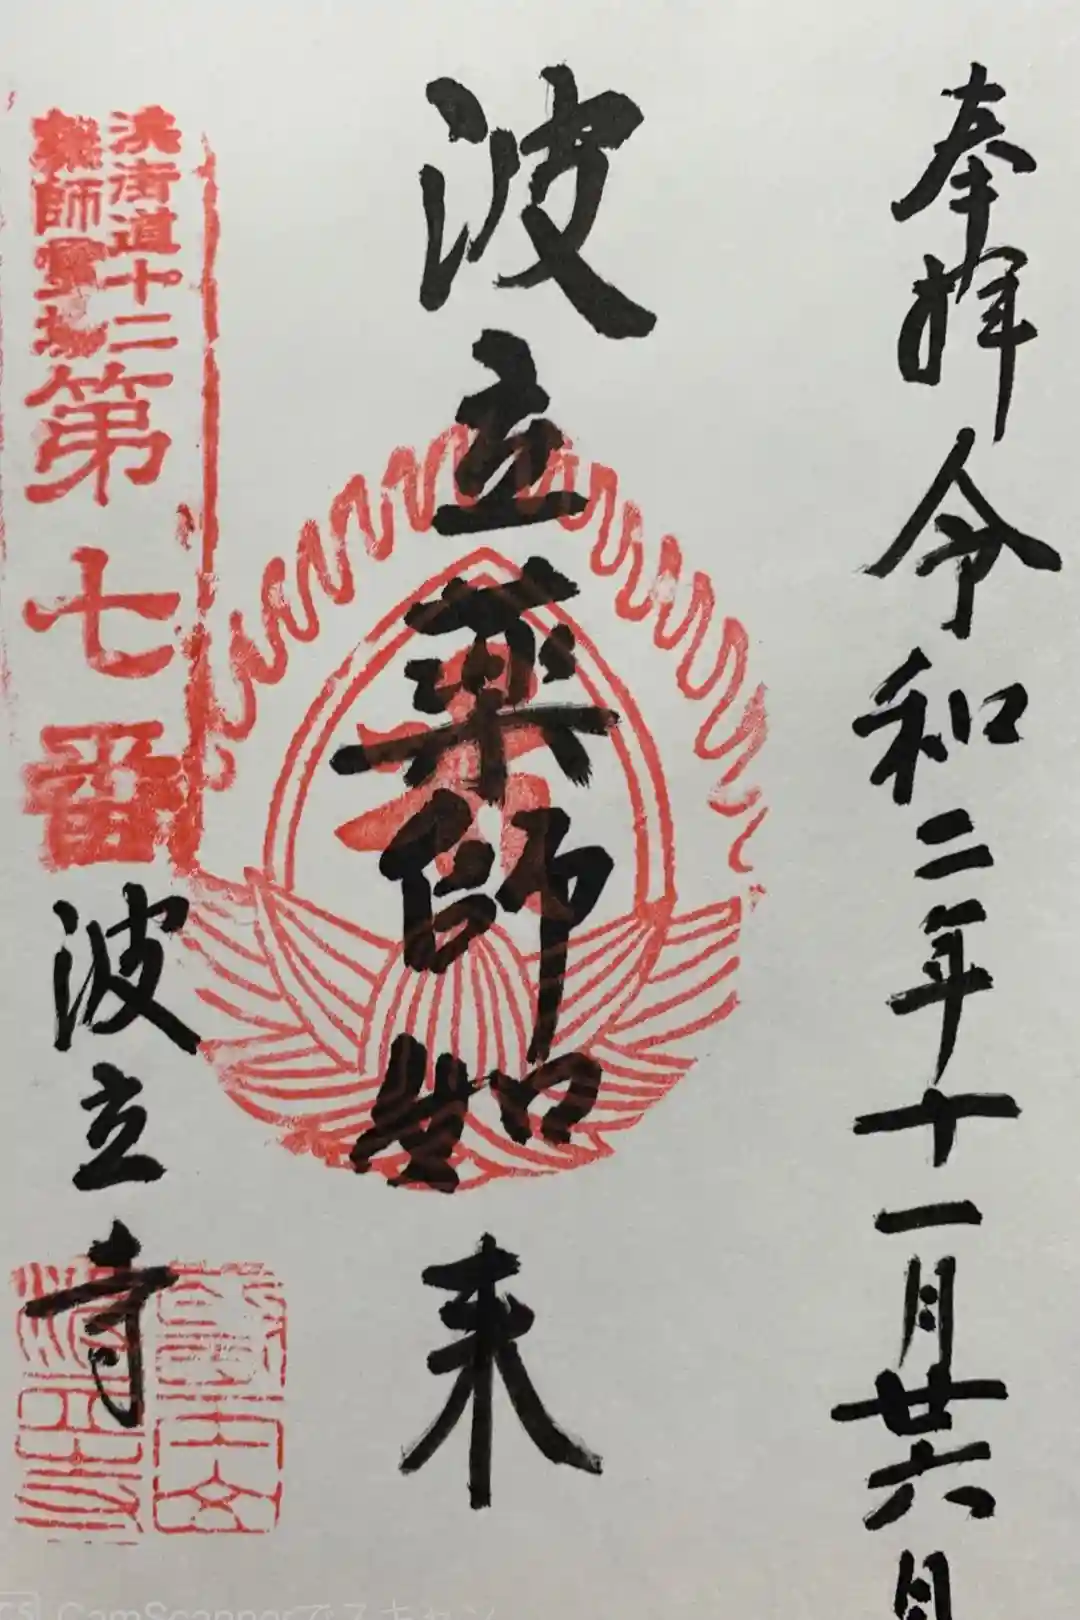 奉拝 令和二年十一月廿六日
波立薬師如来
浜街道十二
薬師霊場
第七番
波立寺
CS CamScannerでスキャン